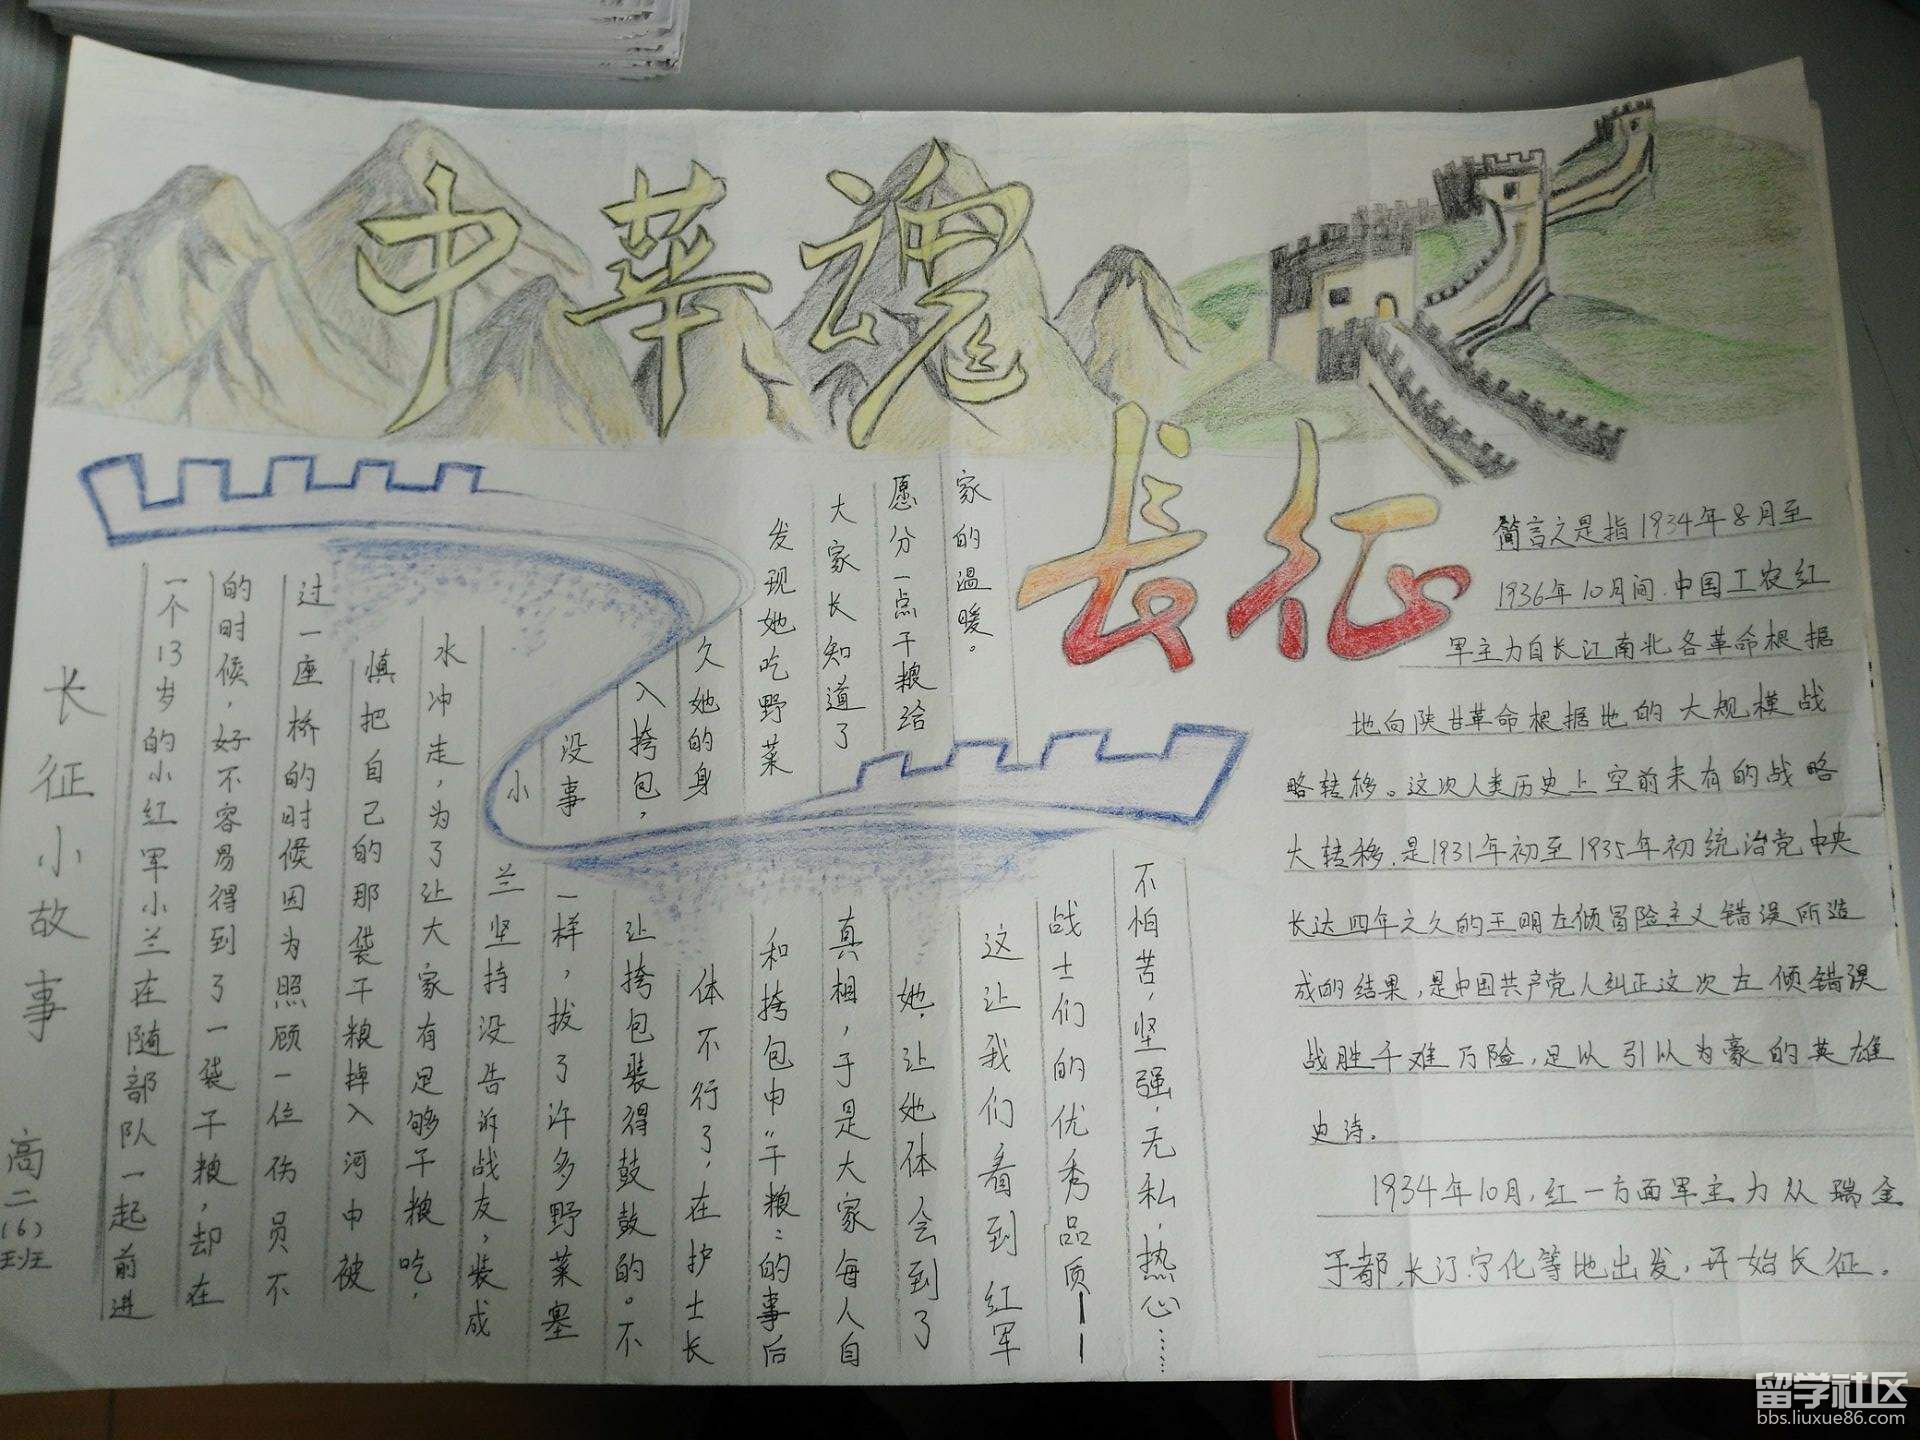 中華魂
长征
长征小故事
高二(6)班
一个13岁的小红军小兰在随部队一起前进
的时候,好不容易得到了一袋干粮,却在
过一座桥的时候因为照顾一位伤员不
慎把自己的那袋干粮掉入河中被
水冲走,为了让大家有足够干粮吃,
小兰坚持没告诉战友,装成
没事一样,拔了许多野菜塞
入挎包,让挎包装得鼓鼓的。不
久她的身体不行了,在护士长
发现她吃野菜和挎包中“干粮”的事后
大家长知道了真相,于是大家每人自
愿分一点干粮给她,让她体会到了
家的温暖。这让我们看到红军
战士们的优秀品质——
不怕苦,坚强,无私,热心……
简言之是指1934年8月至
1936年10月间.中国工农红
军主力自长江南北各革命根据
地向陕甘革命根据地的大规模战
略转移。这次人类历史上空前未有的战略
大转移,是1931年初至1935年初统治党中央
长达四年之久的王明左倾冒险主义错误所造
成的结果,是中国共产党人纠正这次左倾错误
战胜千难万险,足以引以为豪的英雄
史诗.
1934年10月,红一方面军主力从瑞金
于都,长汀,宁化等地出发,开始长征.
留学社区
bbs.liuxue86.com